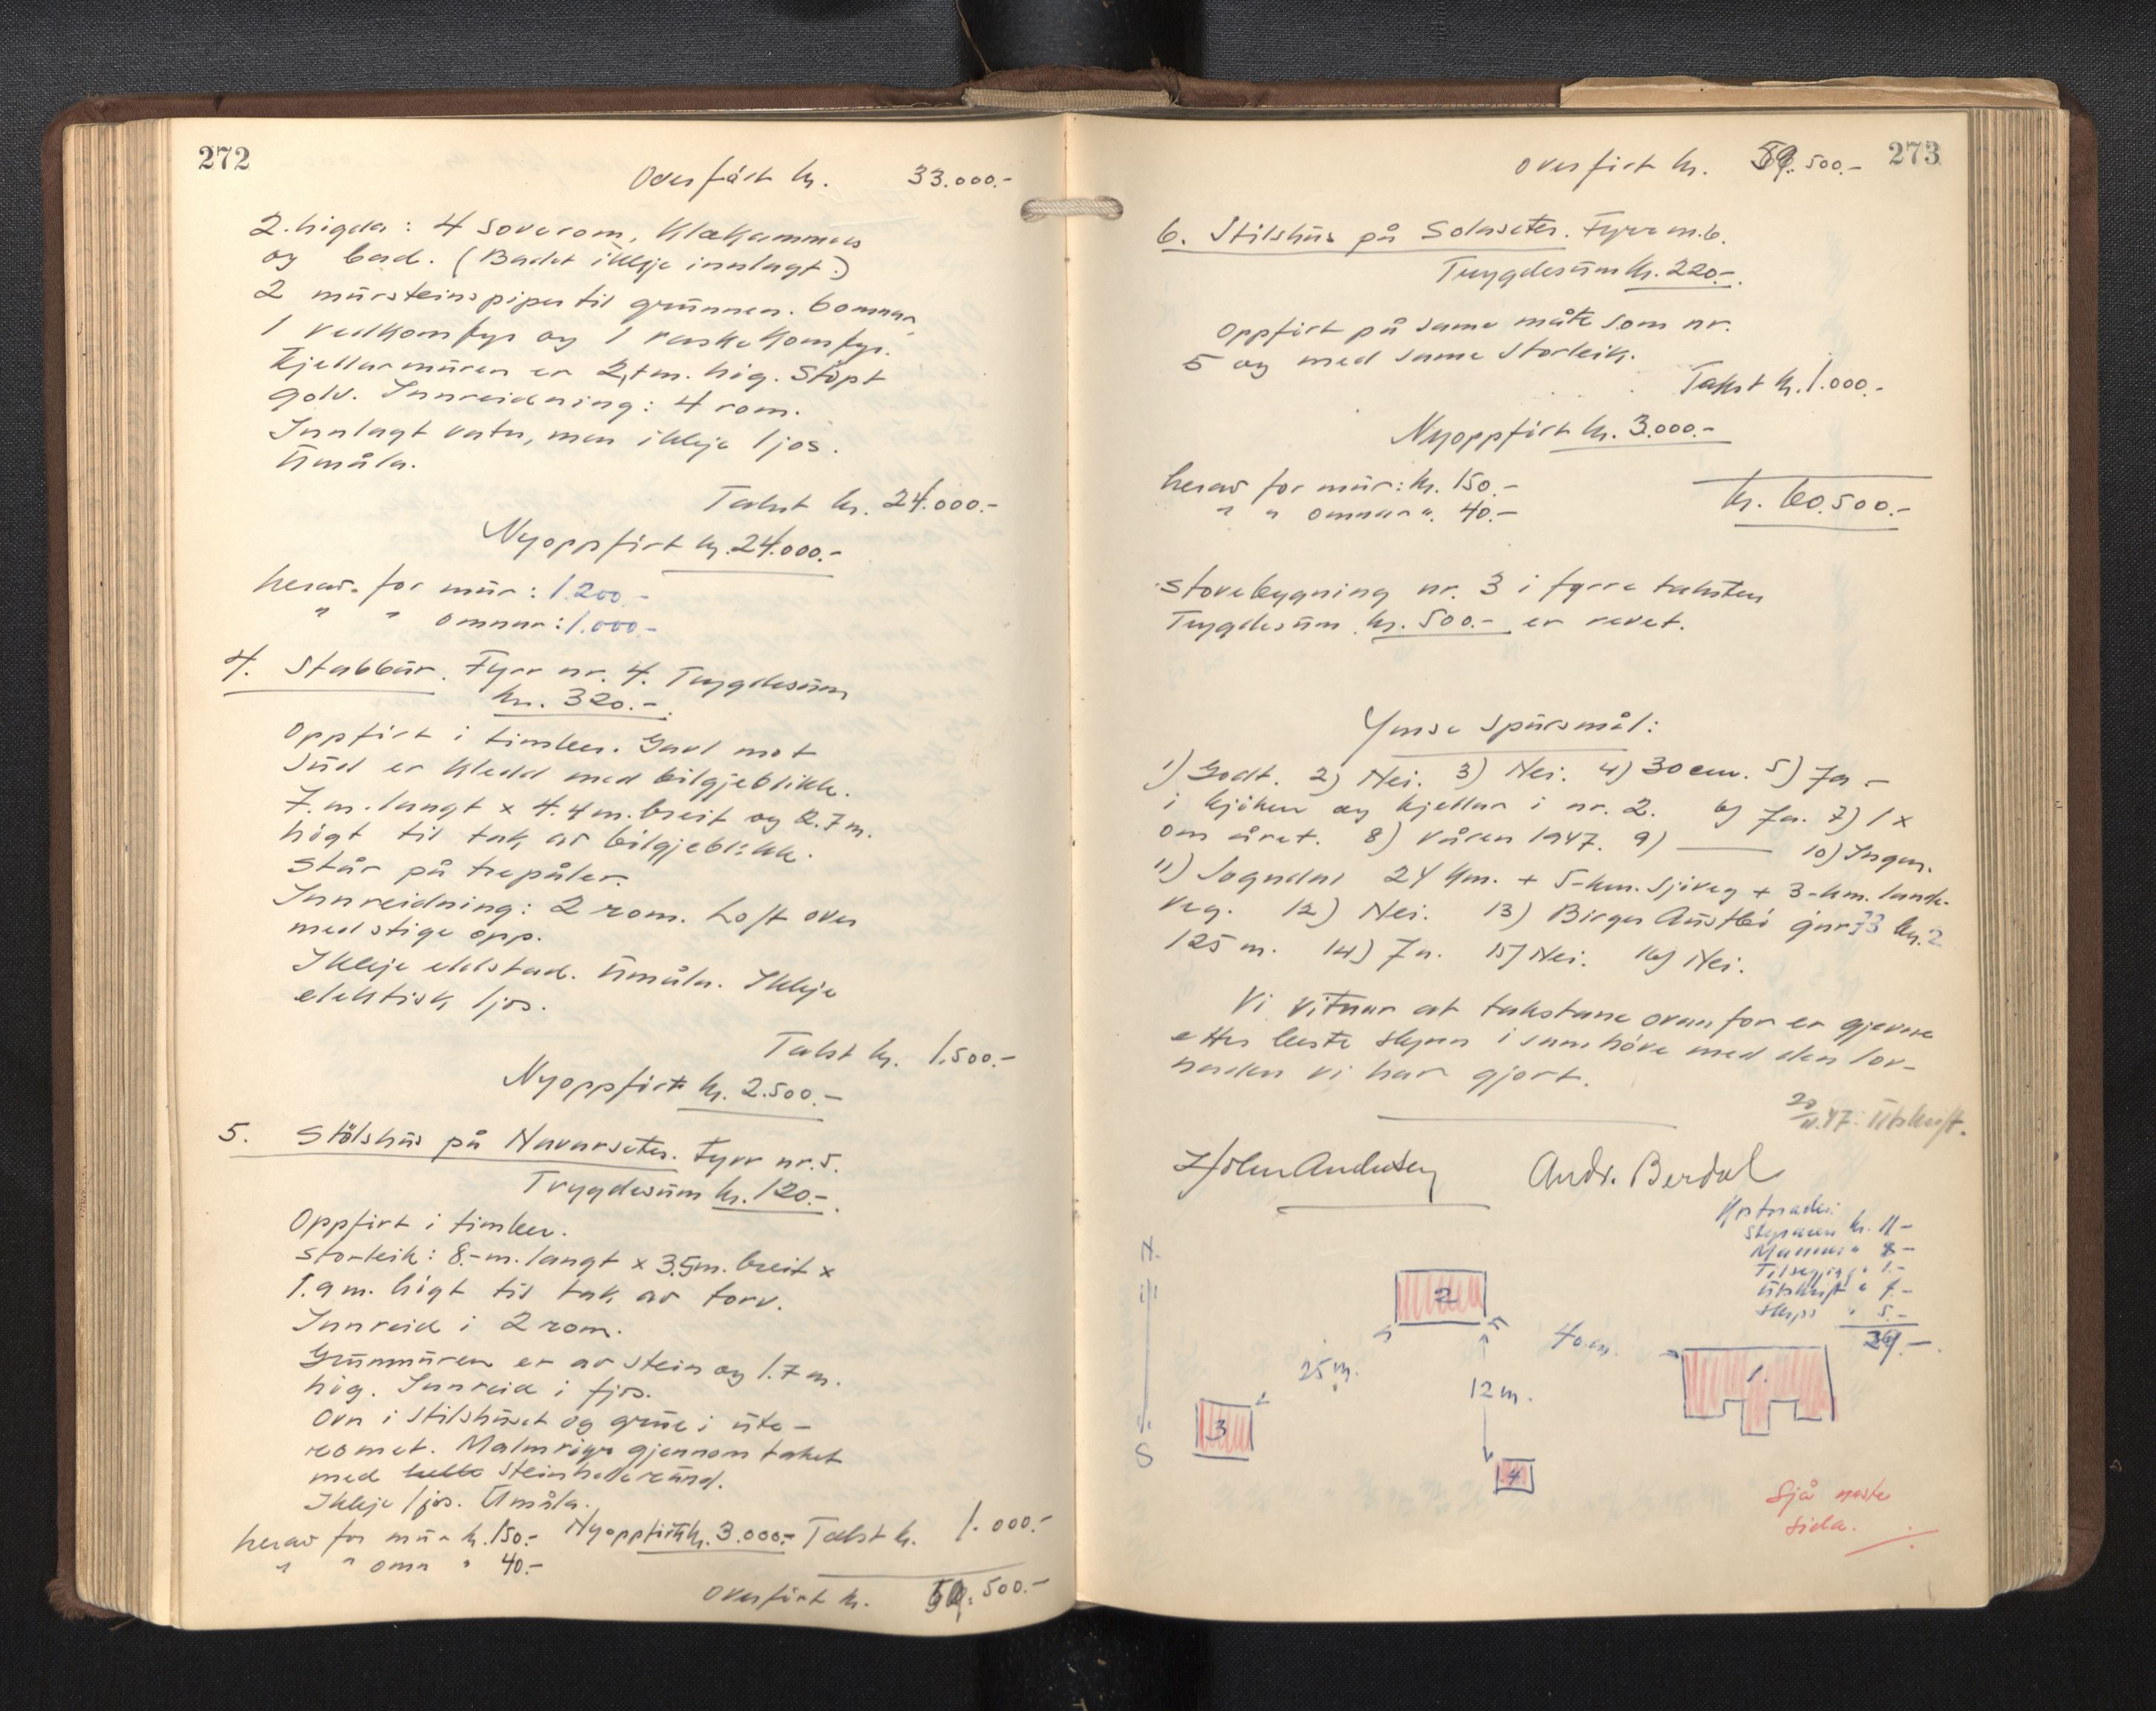 272
Overført kr. 33.000.-
2. høgda: 4 soverom, Klækammers
og bad. (Badet ikkje innlagt.)
2 mürsteinspiper til grünnen. 6 omnar,
1 vedkomfyr og 1 vaskekomfyr.
Kjellarmüren er 2,1 m. høg. Støpt
golv. Innreidning: 4 rom.
Innlagt vatn, men ikkje ljos.
Ümåla.
Takst kr. 24.000.-
Nyoppført kr. 24.000.-
herav for mür: 1.200.-
" " omnar: 1.000.-
4. Stabbür. Fyrr nr. 4. Trygdesüm
kr. 320.-.
Oppført i timber. Gavl mot
süd er kledd med bølgjeblikk.
7. m. langt x 4.4 m. breit og 2.7 m.
høgt til tak av bølgjeblikk.
Står på trepåler.
Innreidning: 2 rom. Loft over
med stige opp.
Ikkje eldstad. Ümåla. Ikkje
elektisk ljos.
Takst kr. 1.500.-
Nyoppført kr. 2.500.-
5. Stölshüs på Navarseter. Fyrr nr. 5.
Trygdesüm kr. 120.-.
Oppført i timber.
Storleik: 8.- m. langt x 3.5 m. breit x
1.9 m. høgt til tak av torv.
Innreid i 2 rom.
Grünmüren er av stein og 1.7 m.
høg. Innreid i fjos.
Ovn i stølshüset og grüe i üte-
romet. Malmrøyr gjennom taket
med steinhelle ründ.
Ikkje ljos. Ümåla.
herav for mür kr. 150.- Nyoppført kr. 3.000.- Takst kr. 1.000.-
" " omn " 40.-
Overført kr. 59.500.-
273
Overført kr. 59.500.-
6. Stølshüs på Solaseter. Fyrr nr. 6.
Trygdesüm kr. 220.-.
Oppført på same måte som nr.
5 og med same storleik.
Takst kr. 1.000.-
Nyoppført kr. 3.000.-
herav for mür: kr. 150.-
" " omnar ". 40.-
kr. 60.500.-
Stovebygning nr. 3 i fyrre taksten
Trygdesüm kr. 500.- er revet.
Ymse spürsmål:
1) Godt. 2) Nei. 3) Nei. 4) 30 cm. 5) Ja -
i kjøken og kjellar i nr. 2. 6) Ja. 7) 1 x
om året. 8) Våren 1947. 9) — 10) Ingen.
11) Sogndal 24 km. + 5-km. sjøveg + 3-km. lande-
veg. 12) Nei. 13) Birger Aüstbø gnr 73 bn. 2
125 m. 14) Ja. 15) Nei. 16) Nei.
Vi vitnar at takstane ovanfor er gjevne
etter beste skjønn i samhøve med den lov-
naden vi har gjort.
20/11.47. Ütskrift.
Andr. Berdal
Kostnader:
Skjønnen kr. 11-
Tilsegjing " 1.-
Ütskrift " 4.-
Skyss " 5.-
N.
S
2
25 m.
3
12 m.
4
40 m.
1.
Sjå neste
sida.